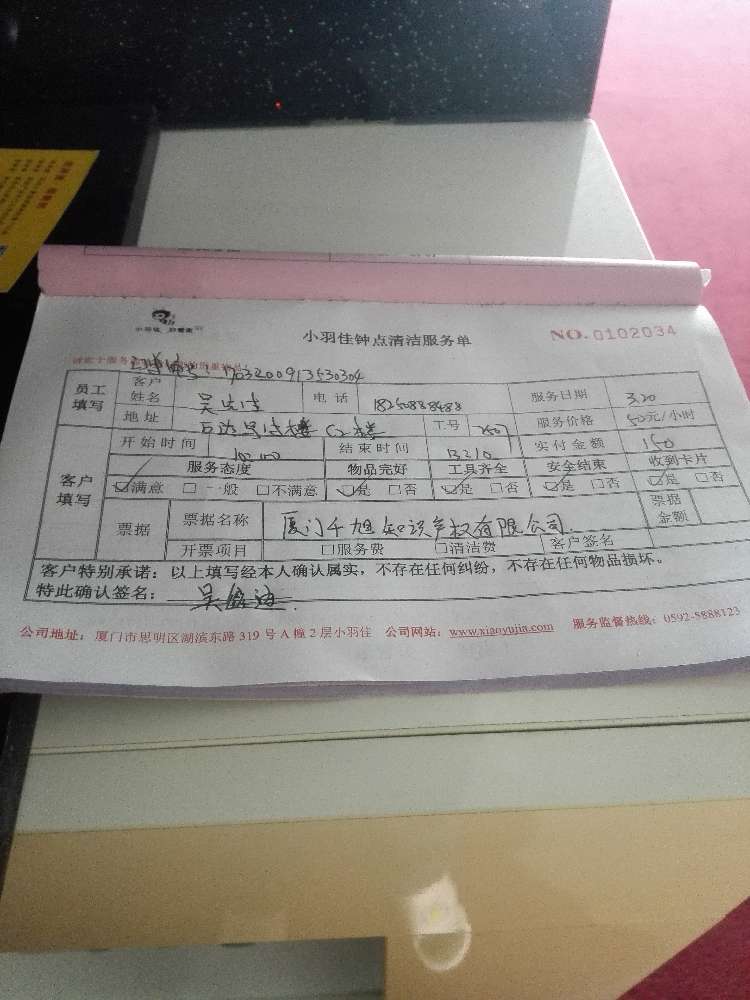 小羽佳钟点清洁服务单 NO.0102034
1703200913530304
员工填写 客户姓名 吴 电话 服务日期 3.20
地址 万达写字楼C2楼 工号 服务价格 50元/小时
客户填写 开始时间 结束时间 实付金额 150
服务态度 物品完好 工具齐全 安全结束 收到卡片
☑满意 □一般 □不满意 ☑是 □否 ☑是 □否 ☑是 □否 ☑是 □否
票据 票据名称 厦门千旭知识产权有限公司 票据金额
开票项目 □服务费 □清洁费 客户签名
客户特别承诺：以上填写经本人确认属实，不存在任何纠纷，不存在任何物品损坏。
特此确认签名： 吴
公司地址：厦门市思明区湖滨东路319号A幢2层小羽佳 公司网站：www.xiaoyujia.com 服务监督热线：0592-5888123